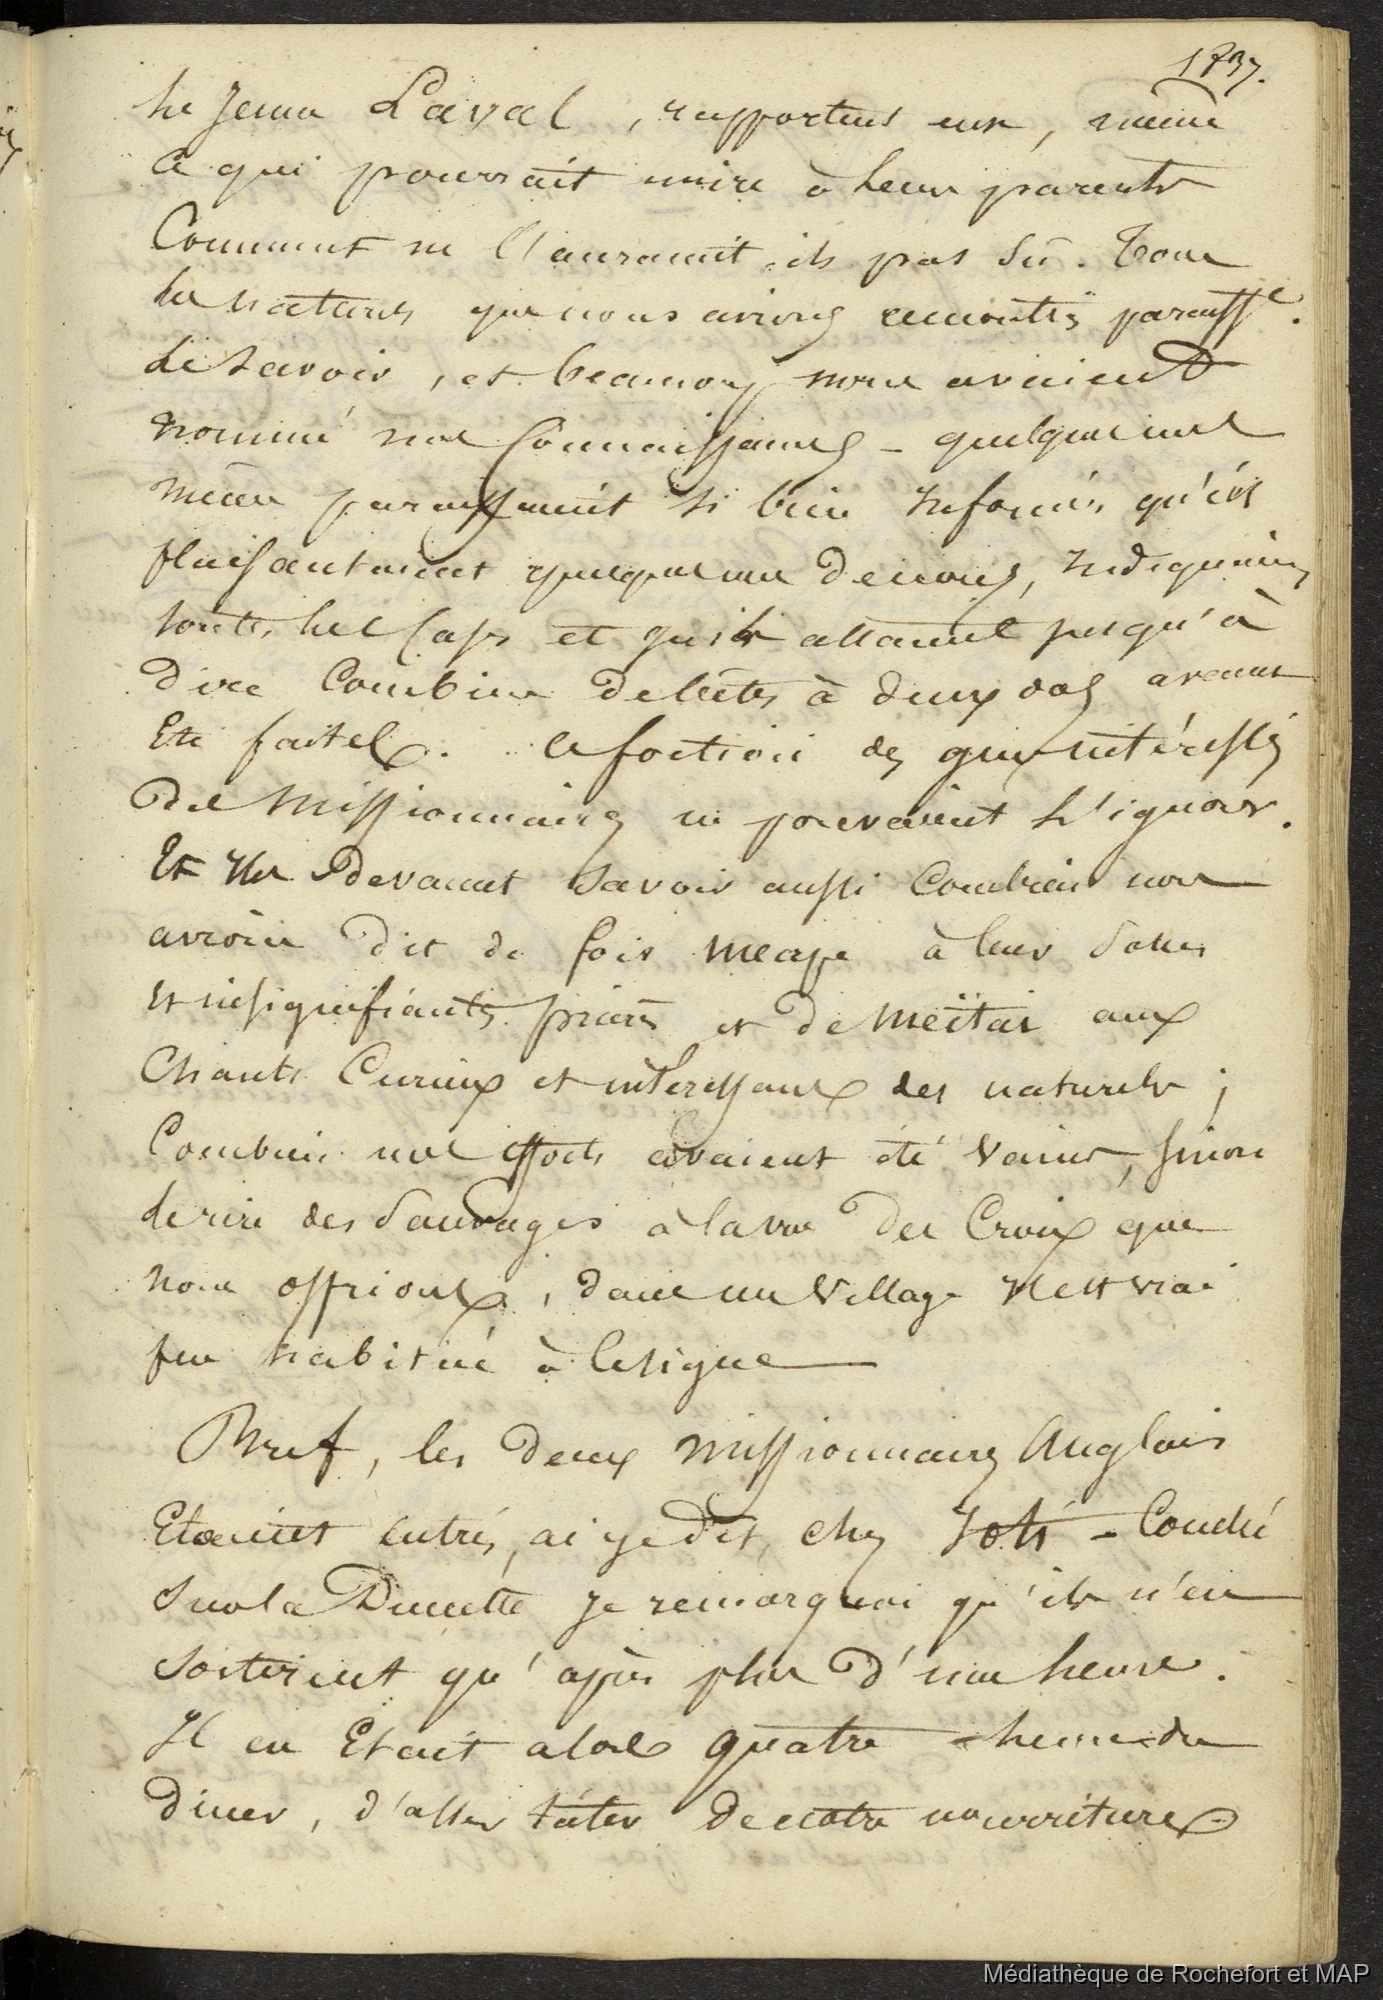 1737.
les jeunes Laval, rapporteurs eux, même
ce qui pourrait nuire à leurs parents
Comment ne l'auraient-ils pas su. Tous
les naturels que nous avions rencontrés
le savoir, et beaucoup nous avaient
nommé nos Connaissances – quelques uns
même paraissaient si bien informés qu'ils
plaisantaient quelques uns de nous, indiquaient
toutes les Cases et qu'ils allaient jusqu'à
dire Combien de bêtes à deux dos avaient
Eté faites. à fortiori des gens intéressés
des Missionnaires ne pouvaient l'ignorer.
Et Ils devaient savoir aussi Combien nous
avions dit de fois meaye à leurs sottes
et insignifiantes prières et de meïtai aux
Chants Curieux et intéressants des naturels ;
Combien nos efforts avaient été vains, sinon
le rire des Sauvages à la vue des Croix que
nous offrions, dans un Village Il est vrai
peu habitué à le signe
Bref, les deux missionnaires Anglais
Etaient entrés, ai je dit, chez – Couché
sur la Dunette je remarquai qu'ils n'en
sortirent qu'après plus d'une heure.
Il en Etait alors quatre – heure du
diner, d'aller tâter de notre nourriture
Médiathèque de Rochefort et MAP